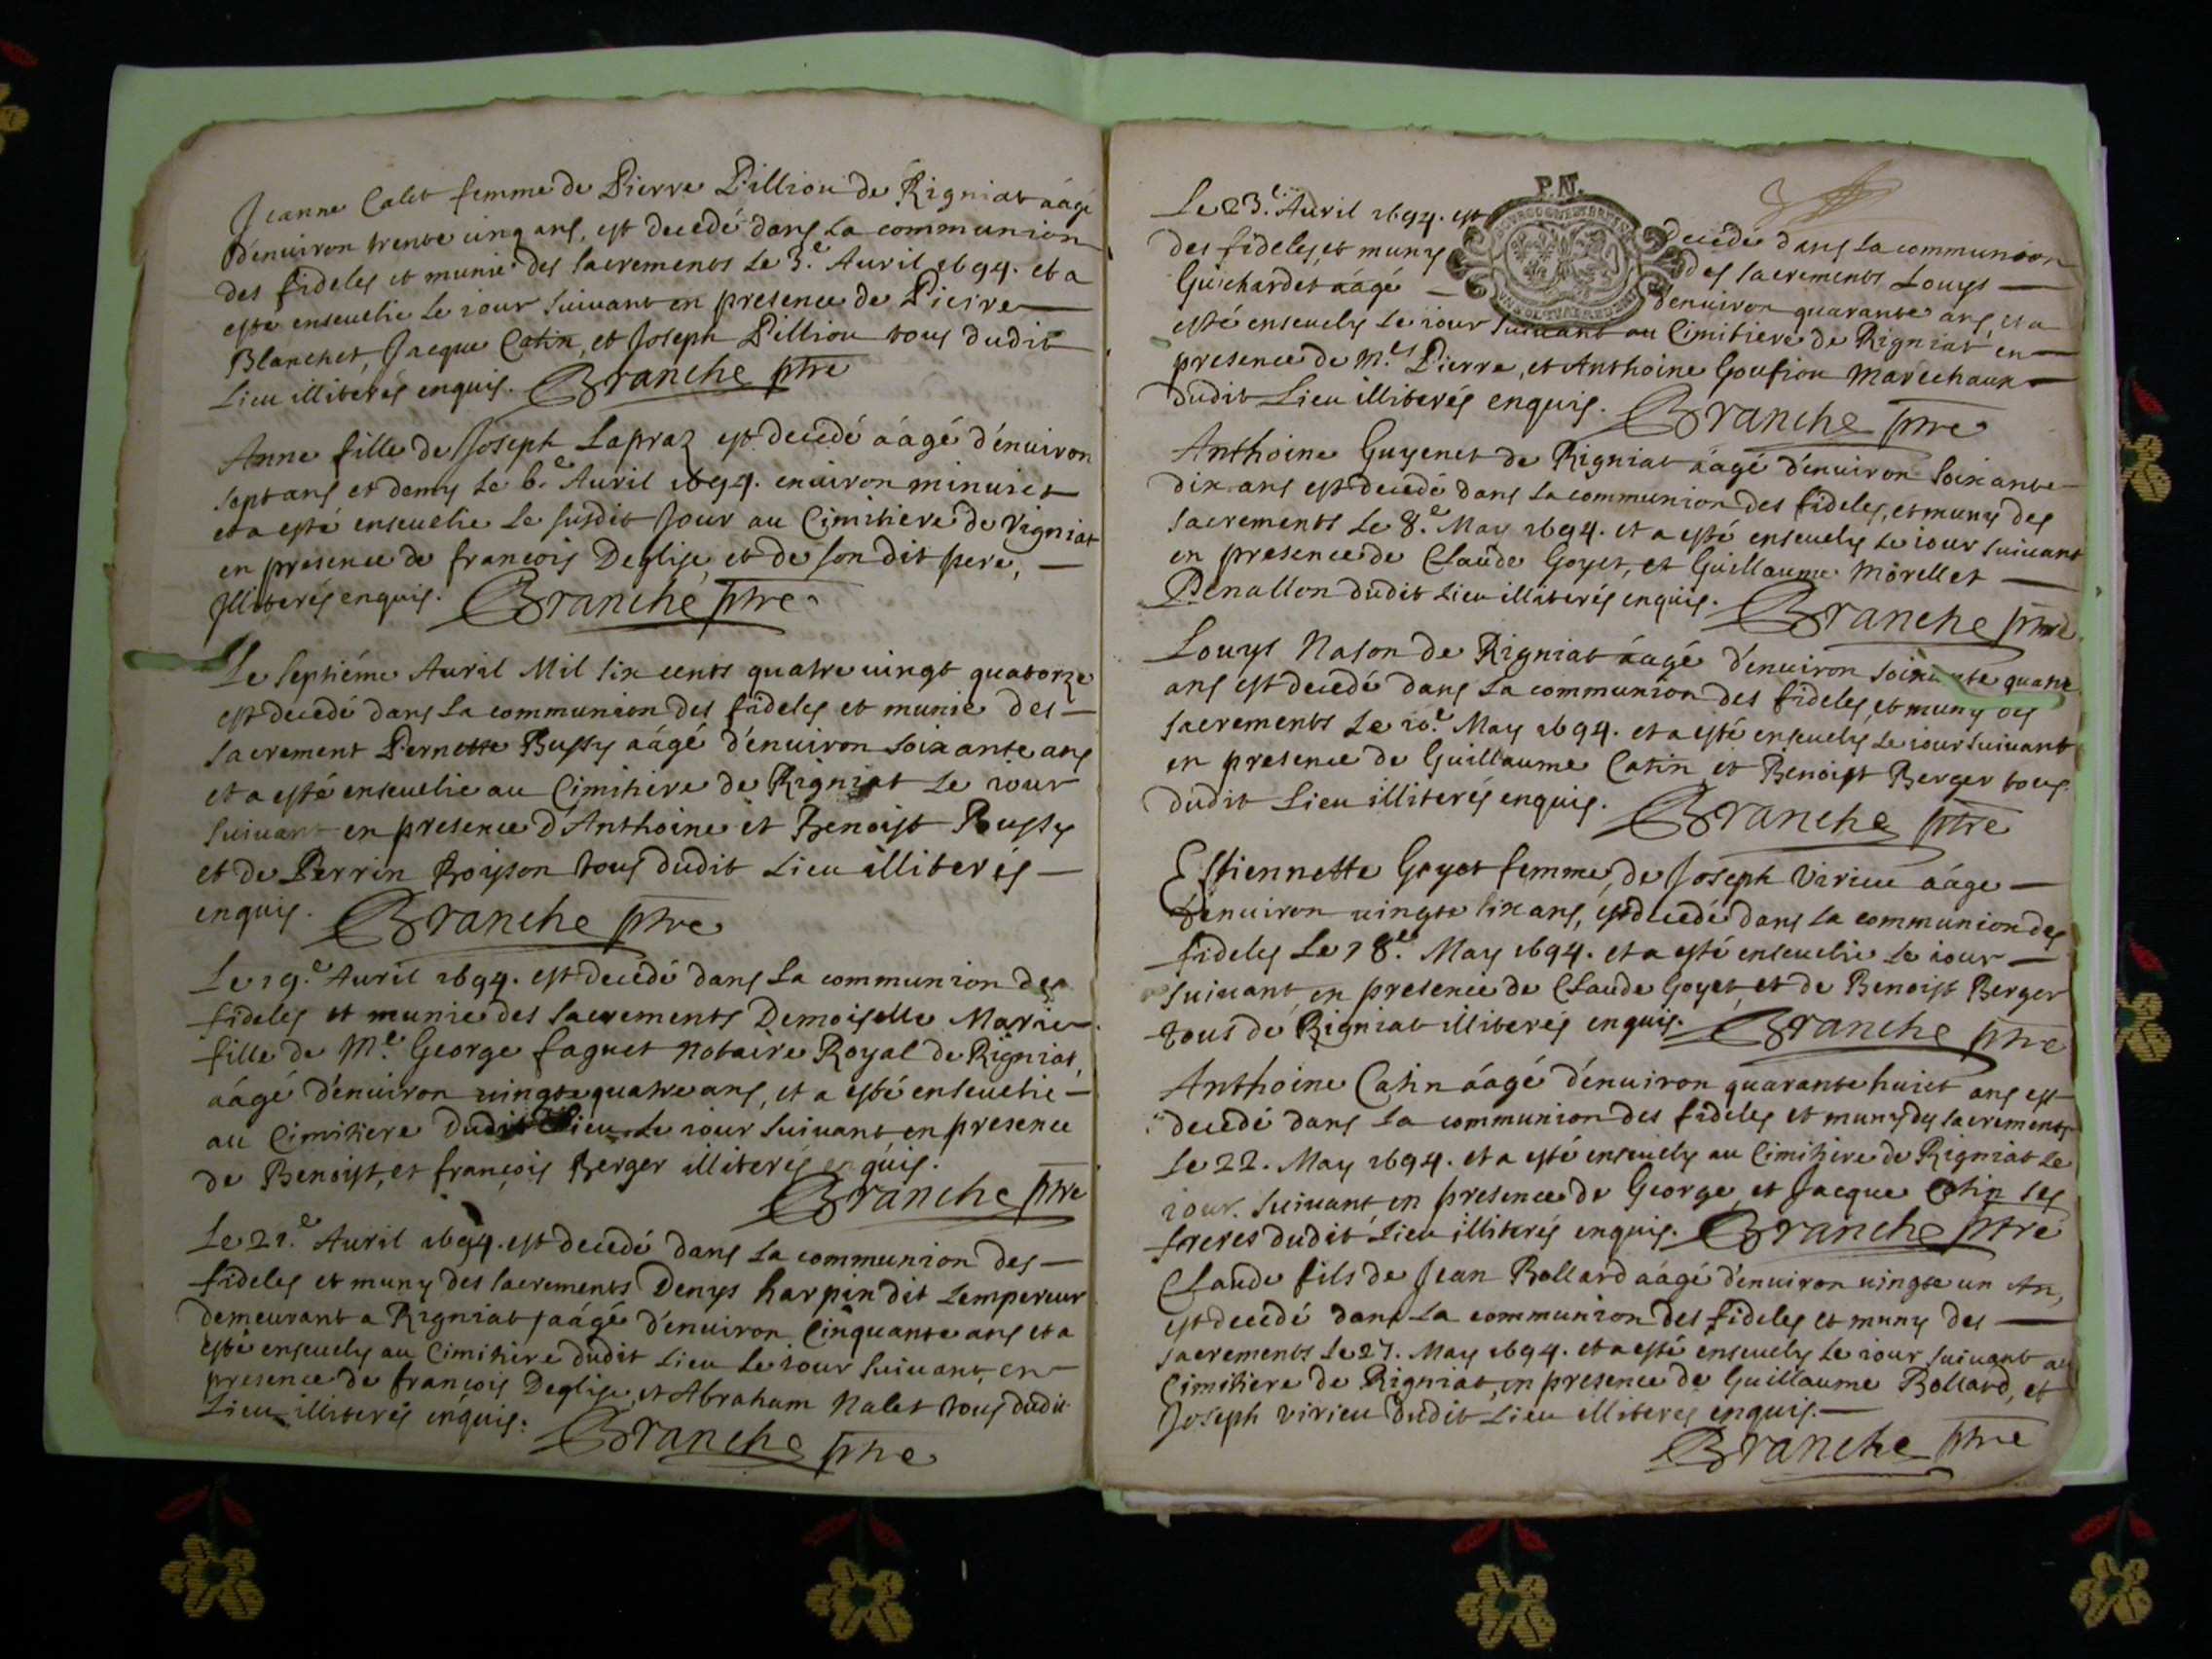 Jeanne Calet femme de Pierre Pilliou de Rigniat aágé
d'enuiron trente cinq ans, est decedé dans la communion
des fideles et munie des sacrements le 3.e Auril 1694. et a
esté enseuelie le iour suiuant en presence de Pierre
Blanchet, Jacque Catin, et Joseph Pilliou tous dudit
Lieu illiterés enquis. Branche ptre
Anne fille de Joseph Lapraz est decedé aágé d'énuiron
sept ans et demy le 6.e Auril 1694. enuiron minuict
et a esté enseuelie le susdit Jour au Cimitiere de Rigniat
en presence de françois Deglise, et de son dit pere,
Illiterés enquis. Branche ptre
Le septiéme Auril Mil six cents quatre uingt quatorze
est decedé dans la communion des fideles et munie des
sacrement Pernette Bussy aágé d'enuiron soixante ans
et a esté enseuelie au Cimitiere de Rigniat le iour
suiuant en presence d'Anthoine et Benoist Bussy
et de Perrin Boyson tous dudit Lieu illiterés
enquis. Branche ptre
Le 19.e Auril 1694. est decedé dans la communion des
fideles et munie des sacrements Demoiselle Marie
fille de M.e George faguet Notaire Royal de Rigniat,
aágé d'enuiron uingt quatre ans, et a esté enseuelie
au Cimitiere dudit Lieu le iour suiuant, en presence
de Benoist, et françois Berger illiterés enquis.
Branche ptre
Le 21.e Auril 1694. est decedé dans la communion des
fideles et muny des sacrements Denys harpin dit Lempereur
demeurant a Rigniat, aágé d'enuiron Cinquante ans et a
esté enseuely au Cimitiere dudit Lieu le iour suiuant, en
presence de françois Deglise, et Abraham Nalet tous dudit
Lieu illiterés enquis. Branche ptre
P. N.
Le 23.e Auril 1694. est decedé dans la communion
des fideles, et muny des sacrements Louys
Guichardet aágé d'enuiron quarante ans, et a
esté enseuely le iour suiuant au Cimitiere de Rigniat en
presence de M.es Pierre, et Anthoine Goufion Maréchaux
dudit Lieu illiterés enquis. Branche ptre
Anthoine Guyenet de Rigniat aágé d'enuiron soixante
dix ans est decedé dans la communion des fideles, et muny des
sacrements le 8.e May 1694. et a esté enseuely le iour suiuant
en presence de Claude Goyet, et Guillaume Mörellet
Penallon dudit Lieu illiterés enquis. Branche ptre
Louys Nason de Rigniat aágé d'enuiron soixante quatre
ans est decedé dans la communion des fideles, et muny des
sacrements le 10.e May 1694. et a esté enseuely le iour suiuant
en presence de Guillaume Catin et Benoist Berger tous
dudit Lieu illiterés enquis. Branche ptre
Estiennette Goyet femme de Joseph Virieu aáge
d'enuiron uingt six ans, est decedé dans la communion des
fideles Le 18.e May 1694. et a esté enseuelie le iour
suiuant, en presence de Claude Goyet, et de Benoist Berger
tous de Rigniat illiterés enquis. Branche ptre
Anthoine Catin aágé d'enuiron quarante huict ans est
decedé dans la communion des fideles et muny des sacrements
le 22. May 1694. et a esté enseuely au Cimitiere de Rigniat le
iour suiuant en presence de George, et Jacque Catin ses
freres dudit Lieu illiterés enquis. Branche ptre
Claude fils de Jean Rollard aágé d'enuiron uingt un An,
est decedé dans la communion des fideles et muny des
sacrements le 27. May 1694. et a esté enseuely le iour suiuant au
Cimitiere de Rigniat, en presence de Guillaume Rollard, et
Joseph virieu dudit Lieu illiteres enquis.
Branche ptre